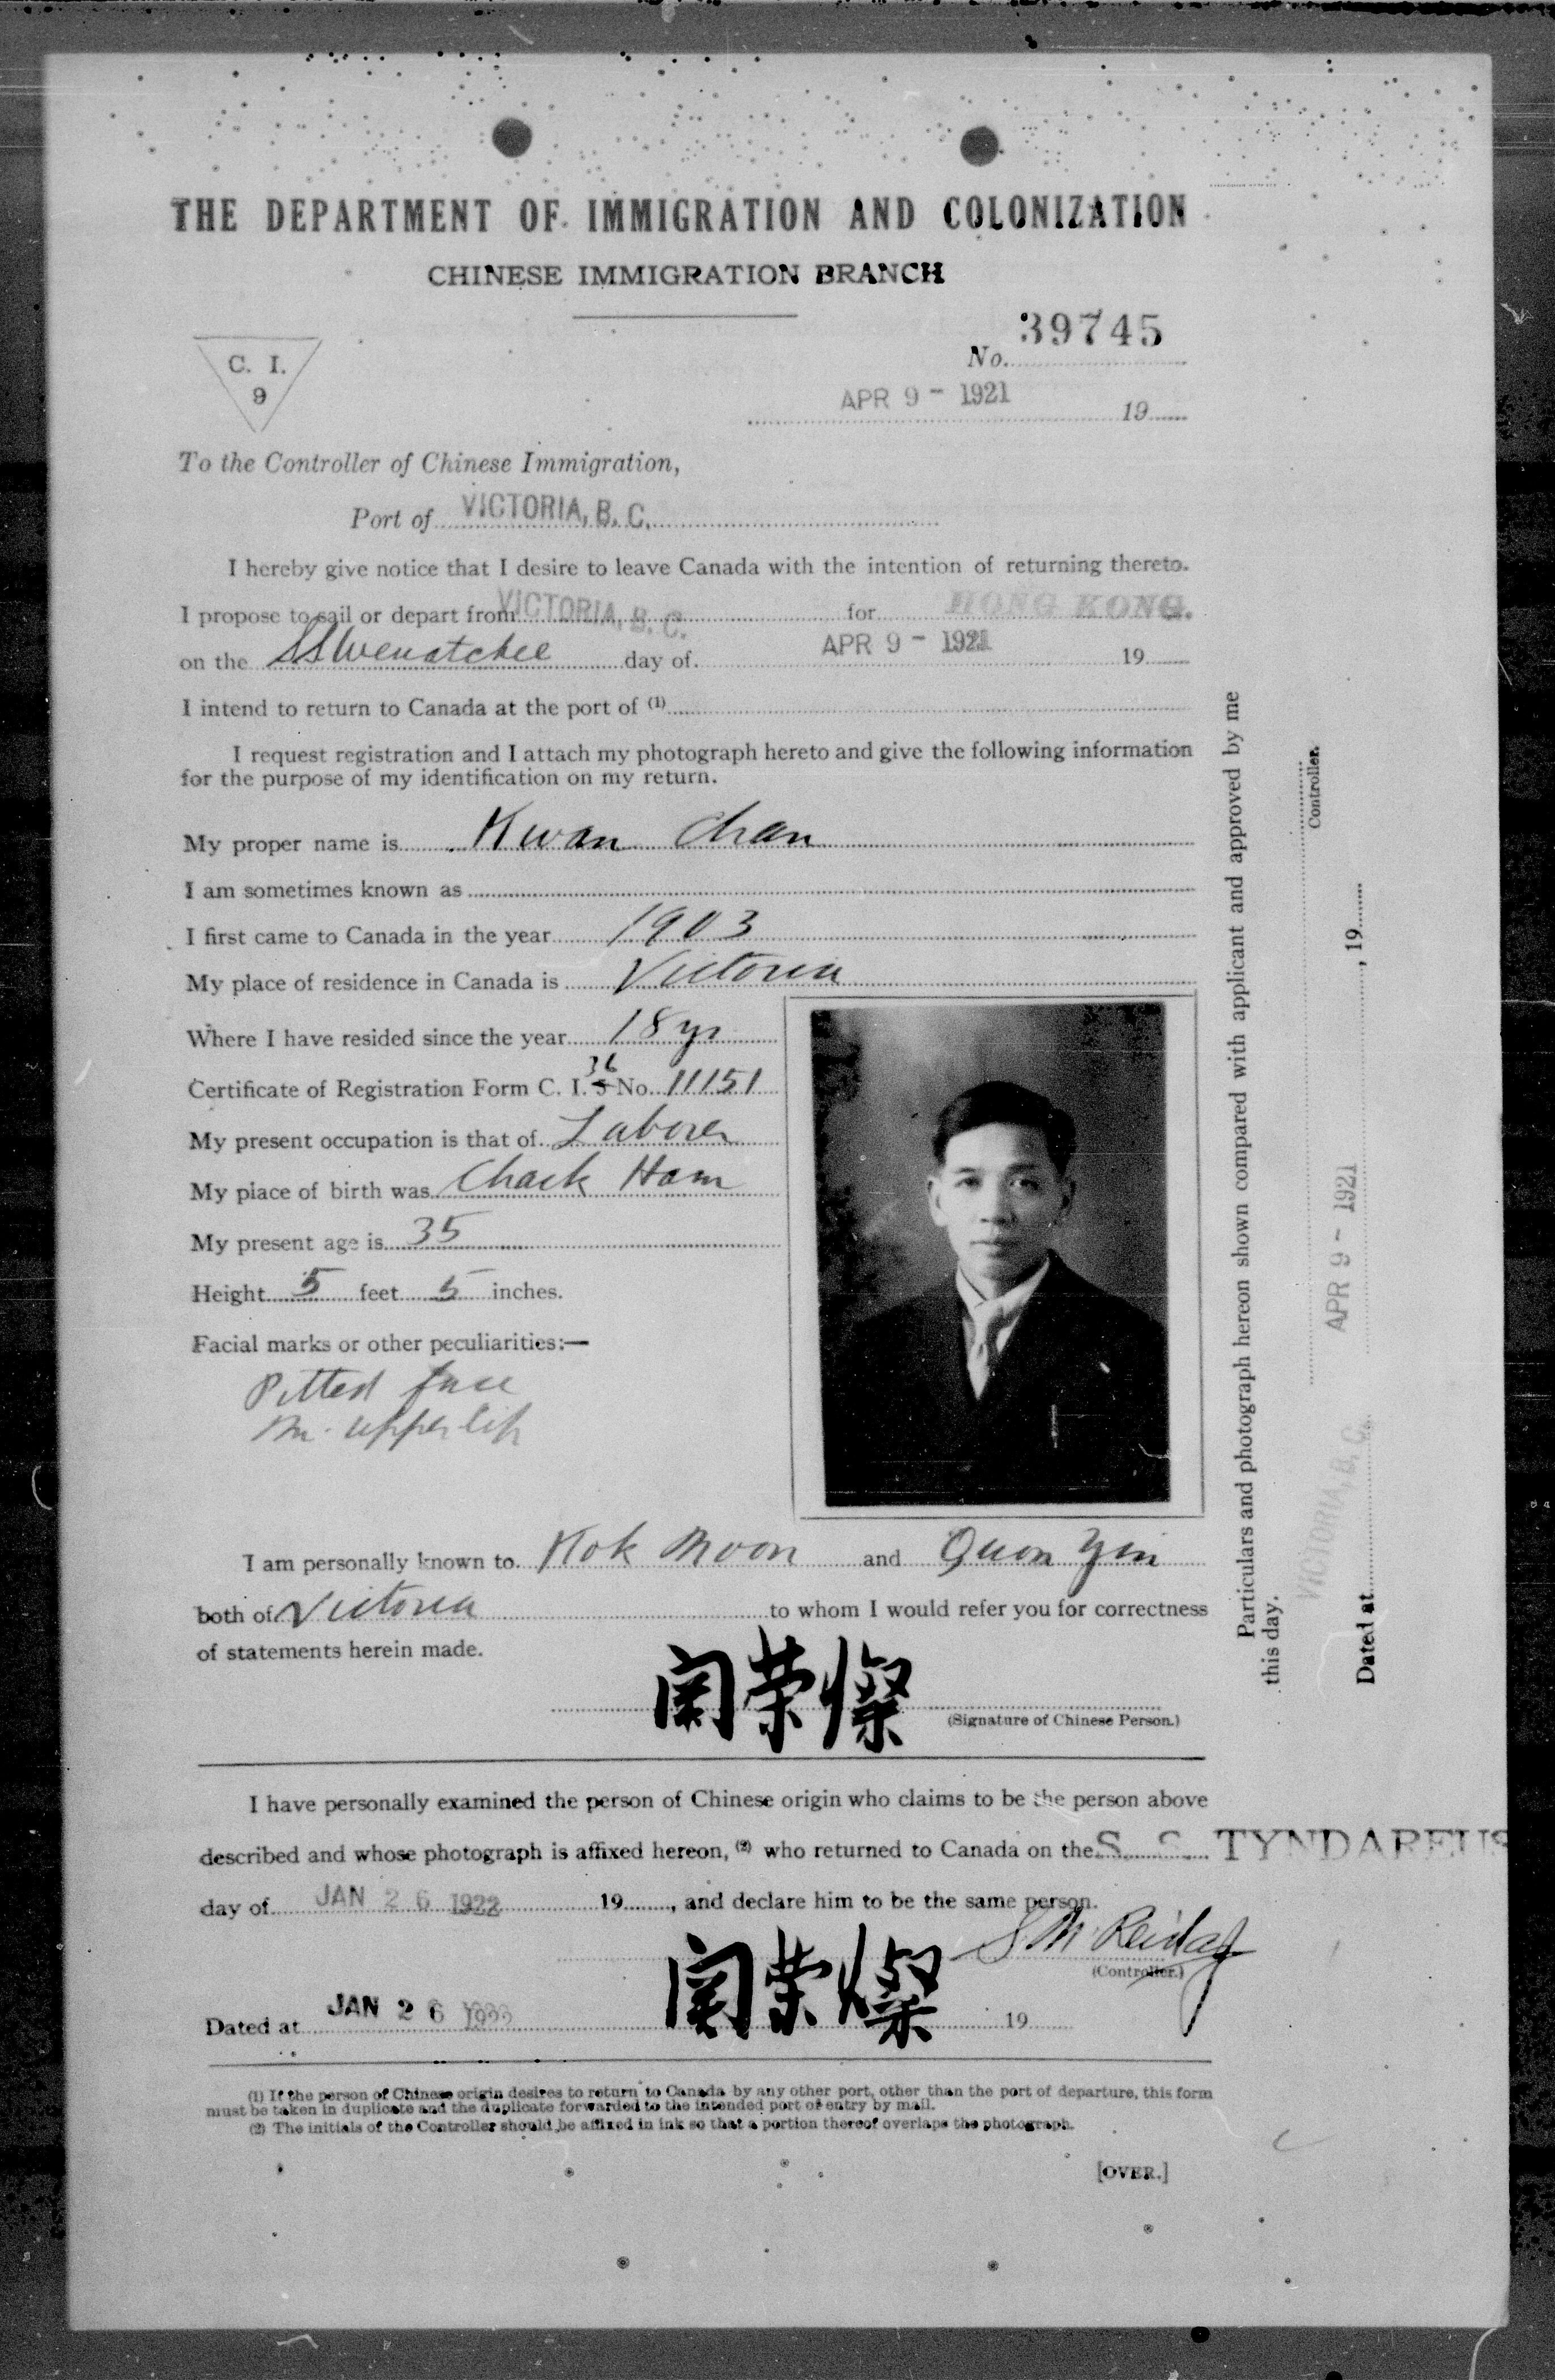 THE DEPARTMENT OF IMMIGRATION AND COLONIZATION
CHINESE IMMIGRATION BRANCH
C. I.
9
39745
No.
APR 9 - 1921
19
To the Controller of Chinese Immigration,
Port of VICTORIA, B. C.
I hereby give notice that I desire to leave Canada with the intention of returning thereto.
I propose to sail or depart from VICTORIA, B. C. for HONG KONG.
on the SS Wenatchee day of APR 9 - 1921 19
I intend to return to Canada at the port of (1)
I request registration and I attach my photograph hereto and give the following information
for the purpose of my identification on my return.
My proper name is Kwan Chan
I am sometimes known as
I first came to Canada in the year 1903
My place of residence in Canada is Victoria
Where I have resided since the year 18 yr
36
Certificate of Registration Form C. I. 5 No. 11151
My present occupation is that of Laborer
My place of birth was Chack Ham
My present age is 35
Height 5 feet 5 inches.
Facial marks or other peculiarities:—
Pitted face
m. upper lip
I am personally known to Kok Moon and Quon Yin
both of Victoria to whom I would refer you for correctness
of statements herein made.
関荣燦
(Signature of Chinese Person.)
I have personally examined the person of Chinese origin who claims to be the person above
described and whose photograph is affixed hereon, (2) who returned to Canada on the S. S. TYNDAREUS
day of JAN 26 1922 19, and declare him to be the same person.
(Controller.)
関荣燦
Dated at JAN 26 19
(1) If the person of Chinese origin desires to return to Canada by any other port, other than the port of departure, this form
must be taken in duplicate and the duplicate forwarded to the intended port of entry by mail.
(2) The initials of the Controller should be affixed in ink so that a portion thereof overlaps the photograph.
[OVER.]
Particulars and photograph hereon shown compared with applicant and approved by me
this day.
Controller.
VICTORIA, B. C. APR 9 - 1921
Dated at , 19